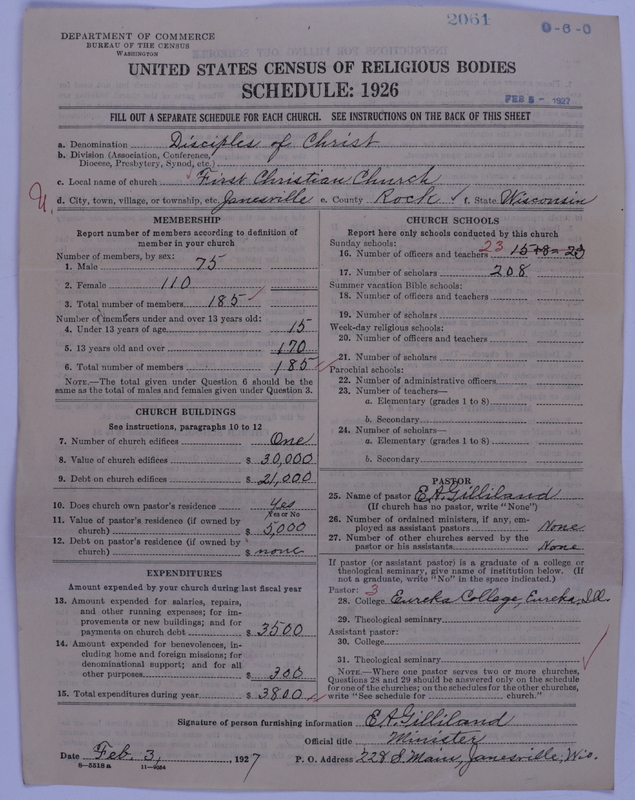 2061
0-6-0
DEPARTMENT OF COMMERCE
BUREAU OF THE CENSUS
WASHINGTON
UNITED STATES CENSUS OF RELIGIOUS BODIES
SCHEDULE: 1926
FEB 5 - 1927
FILL OUT A SEPARATE SCHEDULE FOR EACH CHURCH. SEE INSTRUCTIONS ON THE BACK OF THIS SHEET
a. Denomination Disciples of Christ
b. Division (Association, Conference, Diocese, Presbytery, Synod, etc.)
c. Local name of church First Christian Church
d. City, town, village, or township, etc. Janesville e. County Rock f. State Wisconsin
MEMBERSHIP
Report number of members according to definition of
member in your church
Number of members, by sex:
1. Male 75
2. Female 110
3. Total number of members 185
Number of members under and over 13 years old:
4. Under 13 years of age 15
5. 13 years old and over 170
6. Total number of members 185
NOTE.—The total given under Question 6 should be
same as the total of males and females given under Question 3.
CHURCH BUILDINGS
See instructions, paragraphs 10 to 12
7. Number of church edifices One
8. Value of church edifices $ 30,000
9. Debt on church edifices $ 21,000
10. Does church own pastor's residence Yes
Yes or No
11. Value of pastor's residence (if owned by
church) $ 5,000
12. Debt on pastor's residence (if owned by
church) $ none
EXPENDITURES
Amount expended by your church during last fiscal year
13. Amount expended for salaries, repairs,
and other running expenses; for im-
provements or new buildings; and for
payments on church debt $ 3500
14. Amount expended for benevolences, in-
cluding home and foreign missions; for
denominational support; and for all
other purposes $ 300
15. Total expenditures during year $ 3800
CHURCH SCHOOLS
Report here only schools conducted by this church
Sunday schools:
16. Number of officers and teachers 23 15+8=23
17. Number of scholars 208
Summer vacation Bible schools:
18. Number of officers and teachers
19. Number of scholars
Week-day religious schools:
20. Number of officers and teachers
21. Number of scholars
Parochial schools:
22. Number of administrative officers
23. Number of teachers—
a. Elementary (grades 1 to 8)
b. Secondary
24. Number of scholars—
a. Elementary (grades 1 to 8)
b. Secondary
PASTOR
25. Name of pastor E.A. Gilliland
(If church has no pastor, write "None")
26. Number of ordained ministers, if any, em-
ployed as assistant pastors None
27. Number of other churches served by the
pastor or his assistants None
If pastor (or assistant pastor) is a graduate of a college or
theological seminary, give name of institution below. (If
not a graduate, write "No" in the space indicated.)
Pastor: 3
28. College Eureka College, Eureka, Ill.
29. Theological seminary
Assistant pastor:
30. College
31. Theological seminary
NOTE.—Where one pastor serves two or more churches,
Questions 28 and 29 should be answered only on the schedule
for one of the churches; on the schedules for the other churches,
write "See schedule for church."
Signature of person furnishing information E.A. Gilliland
Official title Minister
Date Feb. 3, 1927 P. O. Address 228 S. Main, Janesville, Wis.
8-5518a 11-9034